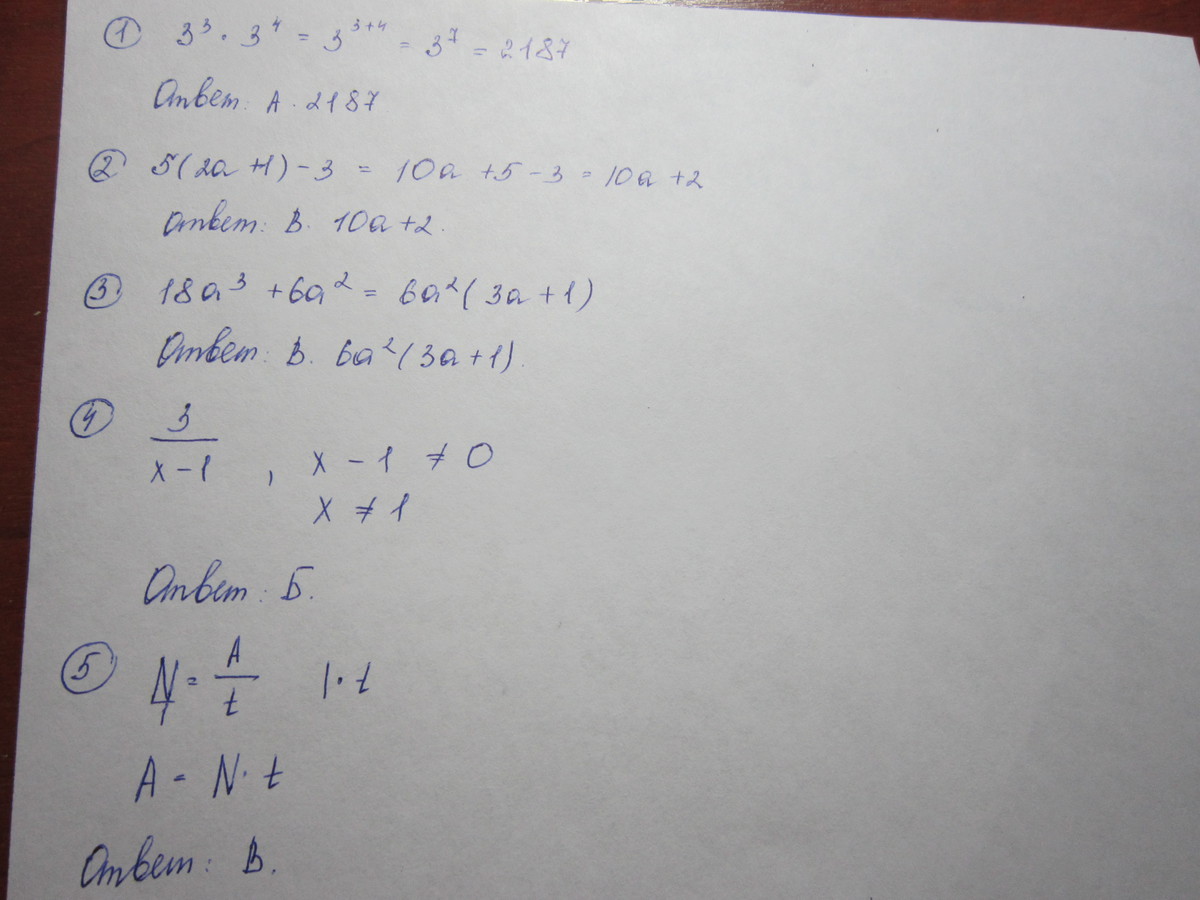 ① 3³ · 3⁴ = 3³⁺⁴ = 3⁷ = 2187
Ответ: А. 2187
② 5(2a+1) - 3 = 10a + 5 - 3 = 10a + 2
Ответ: В. 10a + 2.
③ 18a³ + 6a² = 6a²(3a + 1)
Ответ: В. 6a²(3a + 1).
④ 3/(x - 1) , x - 1 ≠ 0
x ≠ 1
Ответ: Б.
⑤ N = A/t | · t
A = N · t
Ответ: В.